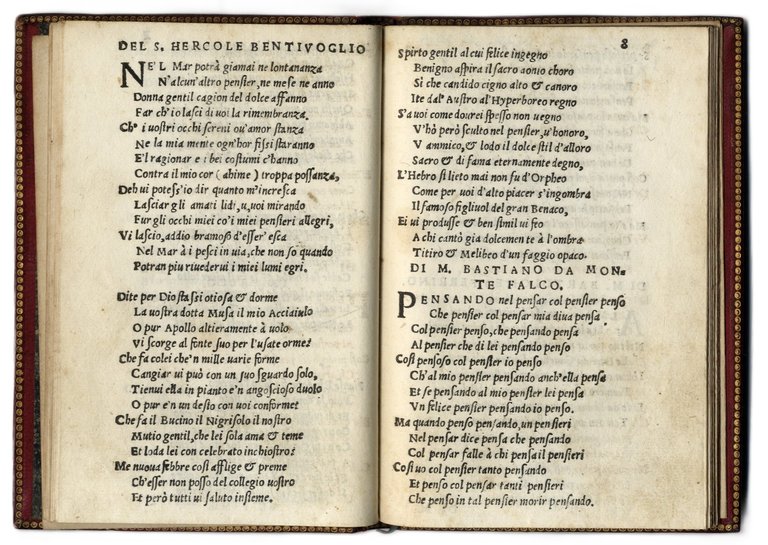 DEL S. HERCOLE BENTIVOGLIO
NE'L Mar potrà giamai ne lontananza
N'alcun'altro pensier, ne mese ne anno
Donna gentil cagion del dolce affanno
Far ch'io lasci di uoi la rimembranza.
Ch'i uostri occhi sereni ou'amor stanza
Ne la mia mente ogn'hor fissi staranno
E'l ragionar e i bei costumi c'hanno
Contra il mio cor (ahime) troppa possanza,
Deh ui potess'io dir quanto m'incresca
Lasciar gli amati lidi, u, uoi mirando
Fur gli occhi miei co'i miei pensieri allegri,
Vi lascio, addio bramosò d'esser'esca
Nel Mar à i pesci in uia, che non so quando
Potran piu riuederui i miei lumi egri.
Dite per Dio stassi otiosa & dorme
La uostra dotta Musa il mio Acciaiulo
O pur Apollo altieramente à uolo
Vi scorge al fonte suo per l'usate orme?
Che fa colei che'n mille uarie forme
Cangiar ui può con un suo sguardo solo,
Tienui ella in pianto e'n angoscioso duolo
O pur e'n un desio con uoi conforme?
Che fa il Bucino il Nigrisolo il nostro
Mutio gentil, che lei sola ama & teme
Et loda lei con celebrato inchiostro?
Me nuoua febbre così afflige & preme
Ch'esser non posso del collegio uostro
Et però tutti ui saluto insieme.
8
Spirto gentil al cui felice ingegno
Benigno aspira il sacro aonio choro
Sì che candido cigno alto & canoro
Ite dal'Austro al'Hyperboreo regno
S'a uoi come dourei spesso non uegno
V'hò però sculto nel pensier, u'honoro,
V ammico, & lodo il dolce stil d'alloro
Sacro & di fama eternamente degno,
L'Hebro sì lieto mai non fu d'Orpheo
Come per uoi d'alto piacer s'ingombra
Il famoso figliuol del gran Benaco,
Ei ui produsse & ben simil ui feo
A chi cantò gia dolcemente à l'ombra
Titiro & Melibeo d'un faggio opaco.
DI M. BASTIANO DA MON-
TE FALCO.
PENSANDO nel pensar col pensier penso
Che pensier col pensar mia diua pensa
Col pensier penso, che pensando penso
Al pensier che di lei pensando penso
Così pensoso col pensier io penso
Ch'al mio pensier pensando anch'ella pensa
Et se pensando al mio pensier lei pensa
Vn felice pensier pensando io penso.
Ma quando penso pensando, un pensieri
Nel pensar dice pensa che pensando
Col pensar falle à chi pensa il pensieri
Così uo col pensier tanto pensando
Et penso col pensar tanti pensieri
Che penso in tal pensier morir pensando.